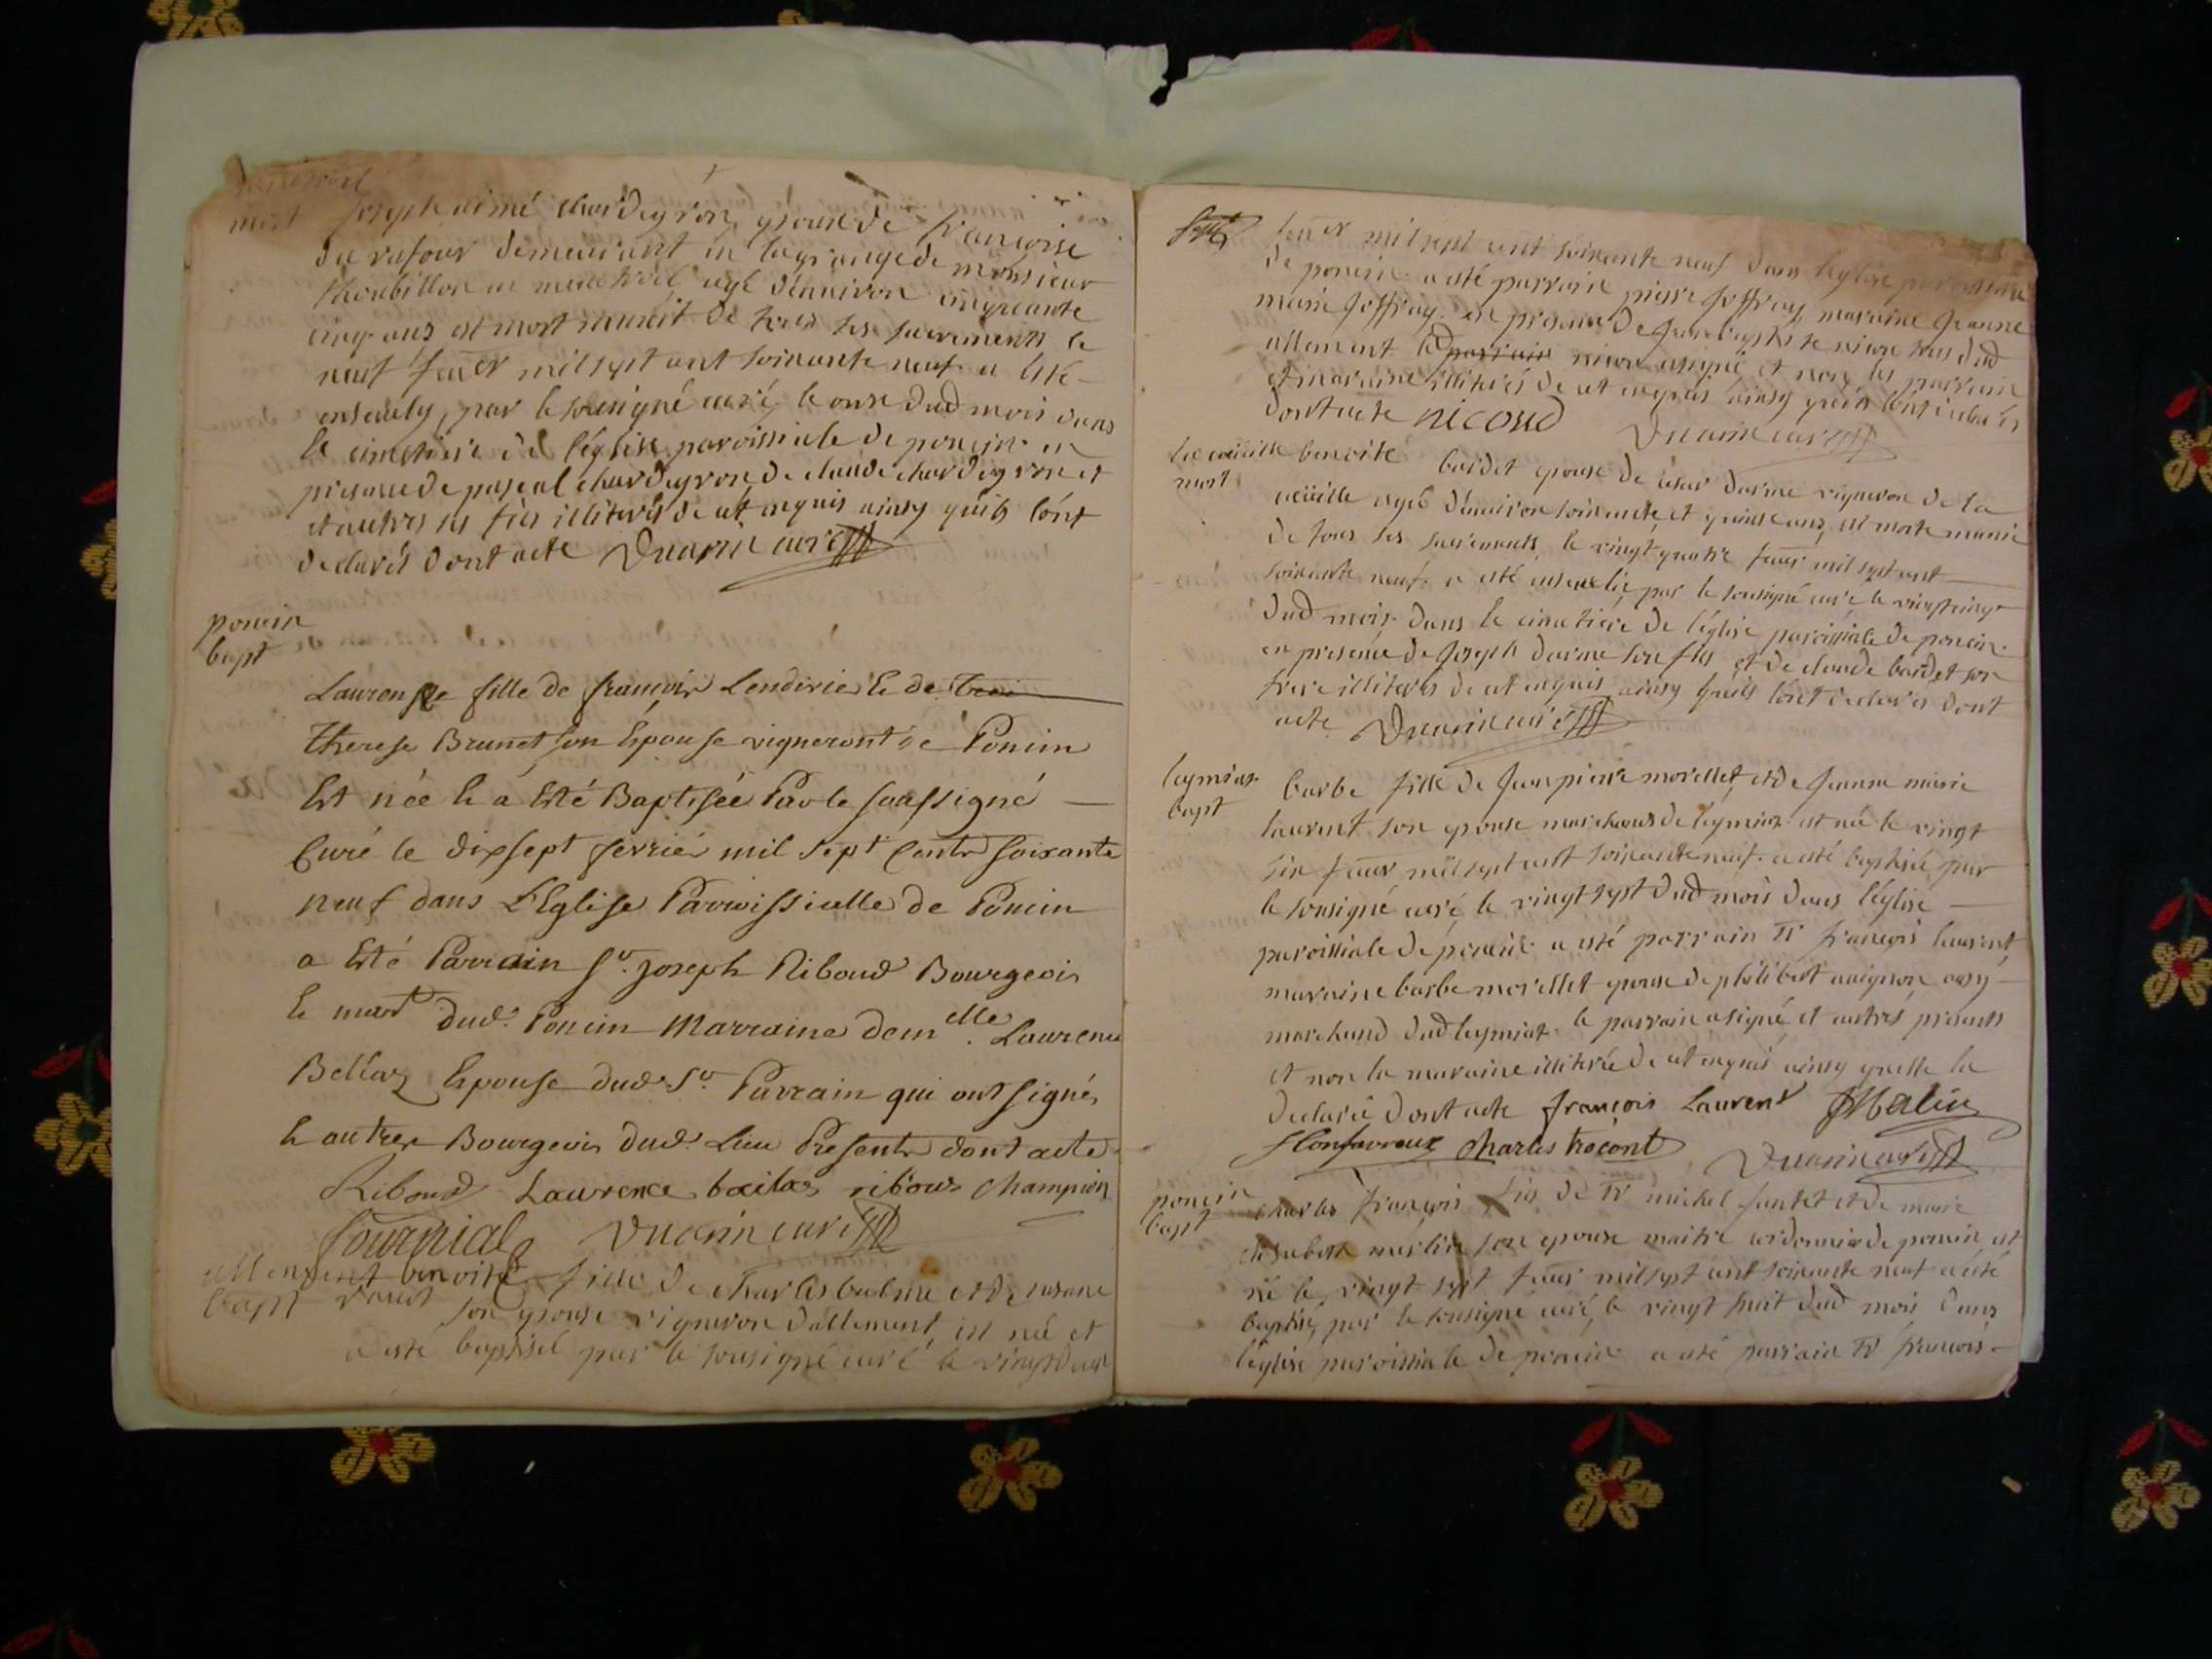 menestruel
mort
joseph aimé chardeyron epoux de françoise
du rafour demeurant en la grange de monsieur
en menestruel agé d'environ cinquante
cinq ans est mort munit de tous ses sacrements le
neuf fever mil sept cent soixante neuf a esté
ensevely, par le sousigné curé, le onze dud mois dans
le cimetiere de l'église paroissiale de poncin en
presence de pascal chardeyron de claude chardeyron et
et autres ses fils illiterés de ce enquis ainsy qu'ils l'ont
declarés dont acte Duarin curé
poncin
bapt
Laurense fille de françois Lendirie & de
therese Brunet son Épouse vigneront de Poncin
Est née & a Esté Baptisée Par le soussigné
Curé le dixsept fevrier mil sept Cents soixante
neuf dans L'Eglise Parroissielle de Poncin
a Esté Parrain sr. joseph Riboud Bourgeois
& mart dud. Poncin Marraine demlle. Laurence
Bellaz Epouse dud sr. Parrain qui ont signés
& autres Bourgeois dud. Lieu Presents dont acte
Riboud Laurence bailas riboud champion
fournial Duarin curé
allement
bapt
benoite fille de charles balme et de susane
son epouse vigneron d'allement, est née et
a esté baptisée par le sousigné curé le vingt deux
fever mil sept cent soixante neuf dans l'eglise paroissiale
de poncin a esté parrain pierre joffray maraine jeanne
marie joffray en presence de jean baptiste nicou dud
allement le parrain nicou asigné et non les parrain
et maraine illiterés de ce enquis ainsy qu'ils l'ont declarés
dont acte nicoud Duarin curé
la cueille
mort
benoite bardet epouse de cesar darme vigneron de la
cueille agée d'environ soixante et quinse ans, est morte munie
de tous ses sacrements, le vingt quatre fever mil sept cent
soixante neuf a esté ensevelie par le sousigné curé le vingt cinq
dud mois dans le cimetiere de l'église paroissiale de poncin
en presence de joseph darme son fils et de claude bardet son
frere illiterés de ce enquis ainsy qu'ils l'ont declarés dont
acte Duarin curé
leymiat
bapt
barbe fille de jean pierre morellet et de jeanne marie
laurent son epouse marchands de leymiat est née le vingt
six fever mil sept cent soixante neuf a esté baptisée par
le sousigné curé le vingt sept dud mois dans l'église
paroissiale de poncin a esté parrain sr françois laurent,
maraine barbe morellet epouse de philibert avignon aussy
marchand dud leymiat le parrain asigné et autres présents
et non la maraine illiterée de ce enquis ainsy qu'elle la
declaré dont acte françois Laurent
Charles trocont Duarin curé
poncin
bapt
charles françois fils de sr michel et de marie
elisabeth merlin son epouse maitre cordonnier de poncin est
né le vingt sept fever mil sept cent soixante neuf a esté
baptisé, par le sousigné curé, le vingt huit dud mois dans
l'église paroissiale de poncin a esté parrain sr françois